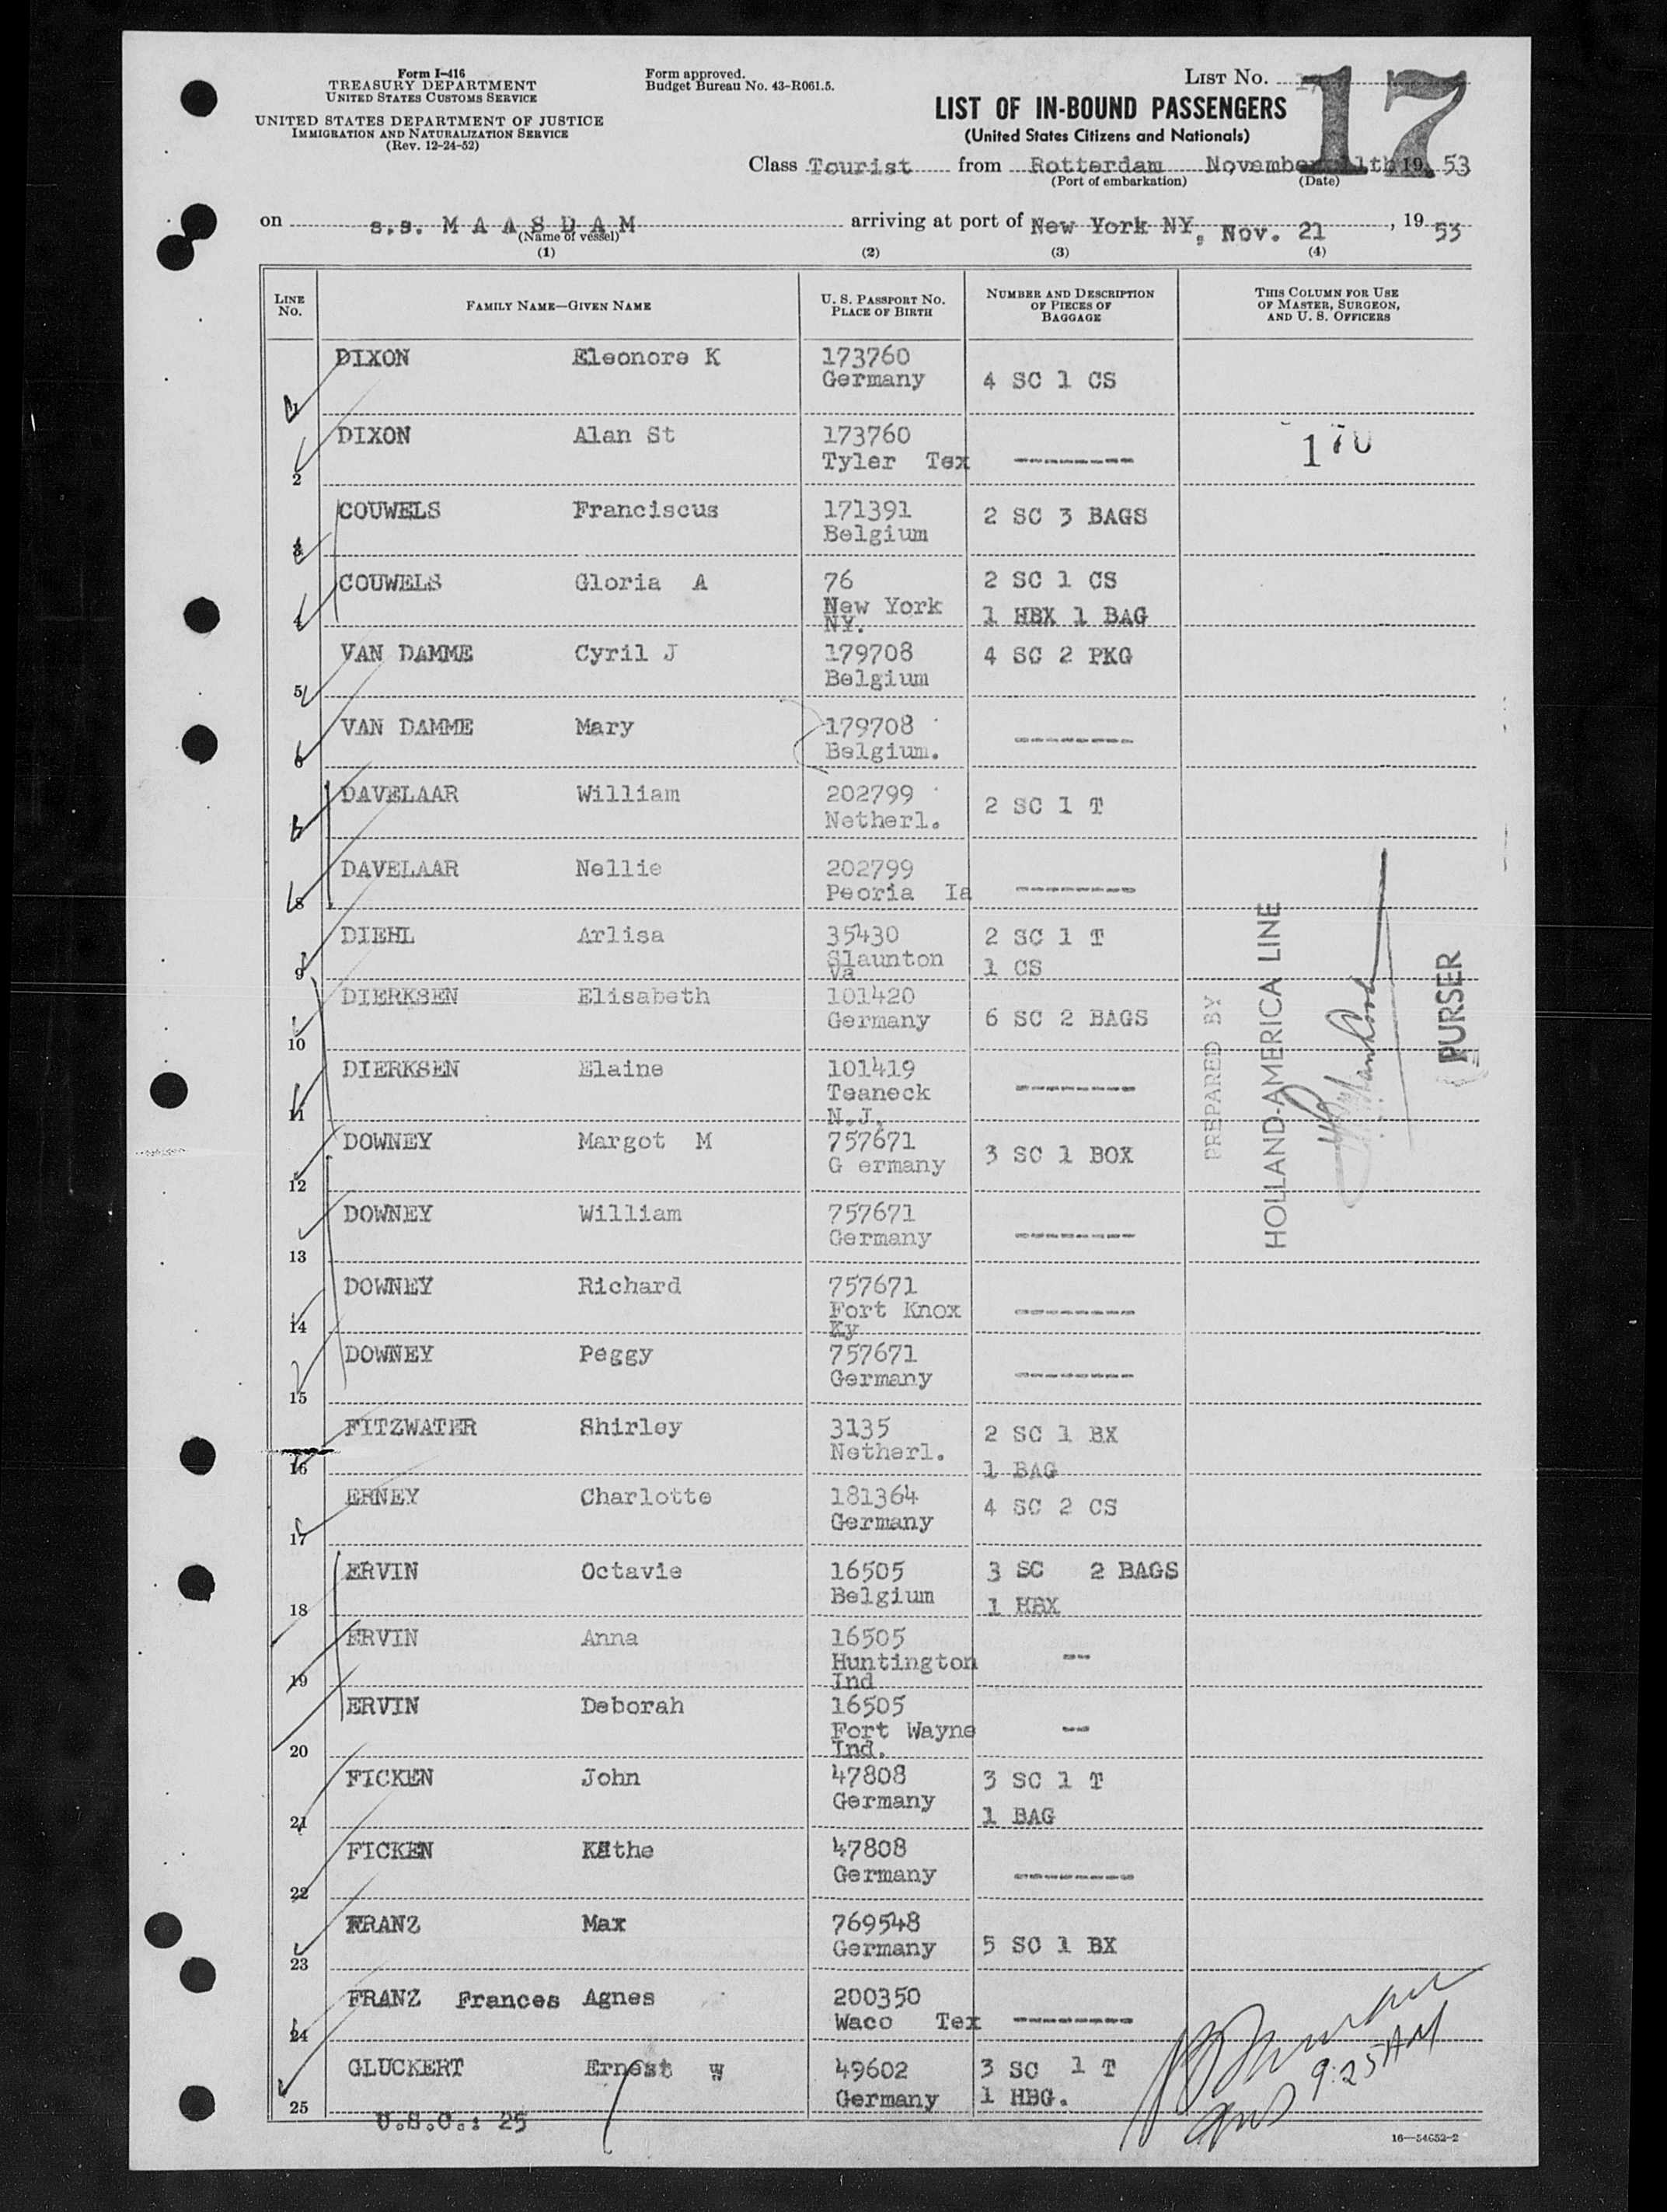 Form I-416
TREASURY DEPARTMENT
UNITED STATES CUSTOMS SERVICE
UNITED STATES DEPARTMENT OF JUSTICE
IMMIGRATION AND NATURALIZATION SERVICE
(Rev. 12-24-52)
Form approved.
Budget Bureau No. 43-R061.5.
LIST NO. 17
LIST OF IN-BOUND PASSENGERS
(United States Citizens and Nationals)
Class Tourist from Rotterdam November 11th 19 53
(Port of embarkation) (Date)
on s.s. M A A S D A M arriving at port of New York NY, Nov. 21, 19 53
(Name of vessel)
(1) (2) (3) (4)
LINE NO. FAMILY NAME—GIVEN NAME U. S. PASSPORT NO. PLACE OF BIRTH NUMBER AND DESCRIPTION OF PIECES OF BAGGAGE THIS COLUMN FOR USE OF MASTER, SURGEON, AND U. S. OFFICERS
1 DIXON Eleonore K 173760
Germany 4 SC 1 CS
2 DIXON Alan St 173760 170
Tyler Tex -------
3 COUWELS Franciscus 171391 2 SC 3 BAGS
Belgium
4 COUWELS Gloria A 76 2 SC 1 CS
New York 1 HBX 1 BAG
NY.
5 VAN DAMME Cyril J 179708 4 SC 2 PKG
Belgium
6 VAN DAMME Mary 179708
Belgium. -------
7 DAVELAAR William 202799 2 SC 1 T
Netherl.
8 DAVELAAR Nellie 202799
Peoria Ia -------
9 DIEHL Arlisa 35430 2 SC 1 T
Slaunton 1 CS
Va
10 DIERKSEN Elisabeth 101420
Germany 6 SC 2 BAGS
11 DIERKSEN Elaine 101419
Teaneck -------
N.J,
12 DOWNEY Margot M 757671 3 SC 1 BOX
G ermany
13 DOWNEY William 757671
Germany -------
14 DOWNEY Richard 757671
Fort Knox -------
Ky
15 DOWNEY Peggy 757671
Germany -------
16 FITZWATER Shirley 3135 2 SC 1 BX
Netherl. 1 BAG
17 ERNEY Charlotte 181364 4 SC 2 CS
Germany
18 ERVIN Octavie 16505 3 SC 2 BAGS
Belgium 1 HBX
19 ERVIN Anna 16505
Huntington --
Ind
20 ERVIN Deborah 16505
Fort Wayne --
Ind.
21 FICKEN John 47808 3 SC 1 T
Germany 1 BAG
22 FICKEN Käthe 47808
Germany -------
23 FRANZ Max 769548
Germany 5 SC 1 BX
24 FRANZ Frances Agnes 200350
Waco Tex -------
25 GLUCKERT Ernest W 49602 3 SC 1 T
Germany 1 HBG.
U.S.C.: 25
PREPARED BY
HOLLAND-AMERICA LINE
PURSER
9:25 AM
16—54652-2